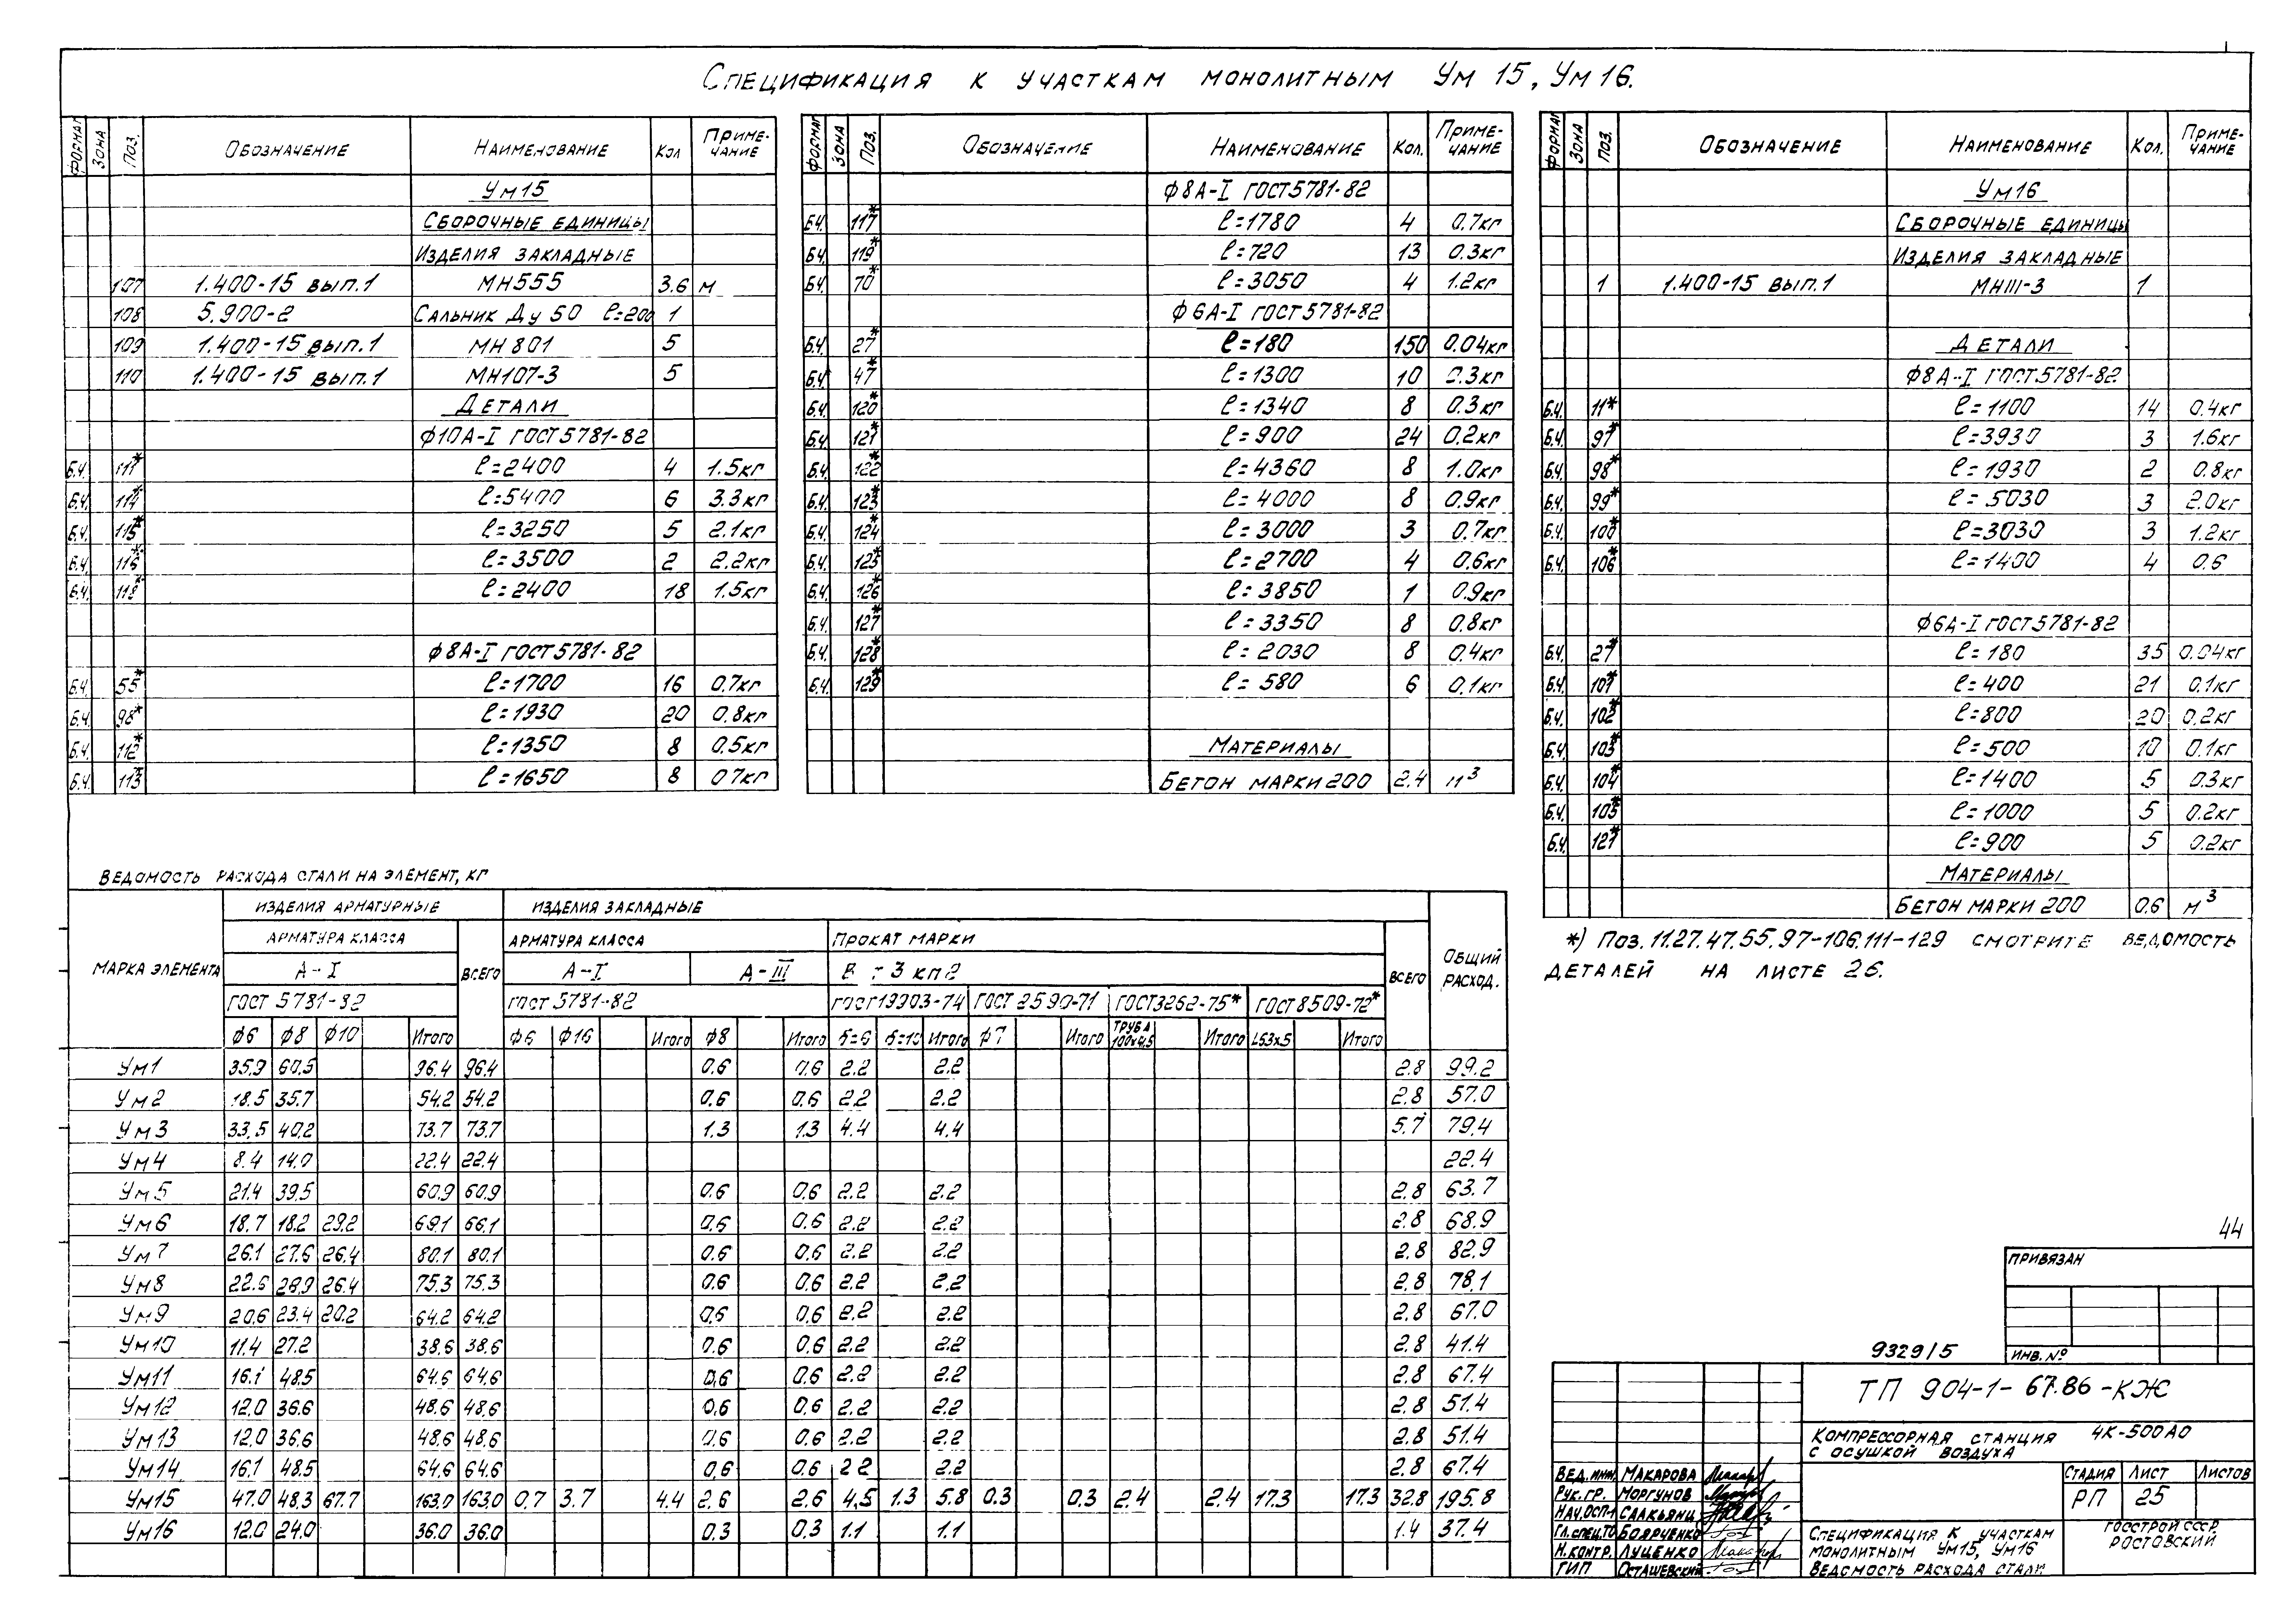 Спецификация к участкам монолитным Ум 15, Ум 16.
Формат Зона Поз. Обозначение Наименование Кол Примечание
Ум15
Сборочные единицы
Изделия закладные
107 1.400-15 вып.1 МН555 3.6 м
108 5.900-2 Сальник Ду 50 ℓ=200 1
109 1.400-15 вып.1 МН 801 5
110 1.400-15 вып.1 МН107-3 5
Детали
Ф10А-I ГОСТ 5781-82
Б.Ч. 111* ℓ=2400 4 1.5кг
Б.Ч. 114* ℓ=5400 6 3.3кг
Б.Ч. 115* ℓ=3250 5 2.1кг
Б.Ч. 116* ℓ=3500 2 2.2кг
Б.Ч. 118* ℓ=2400 18 1.5кг
Ф8А-I ГОСТ 5781-82
Б.Ч. 55* ℓ=1700 16 0.7кг
Б.Ч. 98* ℓ=1930 20 0.8кг
Б.Ч. 112* ℓ=1350 8 0.5кг
Б.Ч. 113* ℓ=1650 8 0.7кг
Формат Зона Поз. Обозначение Наименование Кол. Примечание
Ф8А-I ГОСТ 5781-82
Б.Ч. 117* ℓ=1780 4 0.7кг
Б.Ч. 119* ℓ=720 13 0.3кг
Б.Ч. 70* ℓ=3050 4 1.2кг
Ф6А-I ГОСТ 5781-82
Б.Ч. 27* ℓ=180 150 0.04кг
Б.Ч. 47* ℓ=1300 10 0.3кг
Б.Ч. 120* ℓ=1340 8 0.3кг
Б.Ч. 121* ℓ=900 24 0.2кг
Б.Ч. 122* ℓ=4360 8 1.0кг
Б.Ч. 123* ℓ=4000 8 0.9кг
Б.Ч. 124* ℓ=3000 3 0.7кг
Б.Ч. 125* ℓ=2700 4 0.6кг
Б.Ч. 126* ℓ=3850 1 0.9кг
Б.Ч. 127* ℓ=3350 8 0.8кг
Б.Ч. 128* ℓ=2030 8 0.4кг
Б.Ч. 129* ℓ=580 6 0.1кг
Материалы
Бетон марки 200 2.4 м³
Формат Зона Поз. Обозначение Наименование Кол. Примечание
Ум16
Сборочные единицы
Изделия закладные
1 1.400-15 вып.1 МН111-3 1
Детали
Ф8А-I ГОСТ 5781-82
Б.Ч. 11* ℓ=1100 14 0.4кг
Б.Ч. 97* ℓ=3930 3 1.6кг
Б.Ч. 98* ℓ=1930 2 0.8кг
Б.Ч. 99* ℓ=5030 3 2.0кг
Б.Ч. 100* ℓ=3030 3 1.2кг
Б.Ч. 106* ℓ=1400 4 0.6
Ф6А-I ГОСТ 5781-82
Б.Ч. 27* ℓ=180 35 0.04кг
Б.Ч. 101* ℓ=400 21 0.1кг
Б.Ч. 102* ℓ=800 20 0.2кг
Б.Ч. 103* ℓ=500 10 0.1кг
Б.Ч. 104* ℓ=1400 5 0.3кг
Б.Ч. 105* ℓ=1000 5 0.2кг
Б.Ч. 121* ℓ=900 5 0.2кг
Материалы
Бетон марки 200 0.6 м³
*) Поз. 11.27.47.55.97-106.111-129 смотрите ведомость
деталей на листе 26.
Ведомость расхода стали на элемент, кг
Марка элемента Изделия арматурные Изделия закладные Общий расход.
Арматура класса Всего Арматура класса Прокат марки Всего
А-I А-I А-III В 3 кп2
ГОСТ 5781-82 ГОСТ 5781-82 ГОСТ 19903-74 ГОСТ 2590-71 ГОСТ 3262-75* ГОСТ 8509-72*
Ф6 Ф8 Ф10 Итого Ф6 Ф16 Итого Ф8 Итого δ=6 δ=10 Итого Ф7 Итого Труба 100х4,5 Итого L63х5 Итого
Ум1 35.9 60.5 96.4 96.4 0.6 0.6 2.2 2.2 2.8 99.2
Ум2 18.5 35.7 54.2 54.2 0.6 0.6 2.2 2.2 2.8 57.0
Ум3 33.5 40.2 73.7 73.7 1.3 1.3 4.4 4.4 5.7 79.4
Ум4 8.4 14.0 22.4 22.4 22.4
Ум5 21.4 39.5 60.9 60.9 0.6 0.6 2.2 2.2 2.8 63.7
Ум6 18.7 18.2 29.2 69.1 66.1 0.6 0.6 2.2 2.2 2.8 68.9
Ум7 26.1 27.6 26.4 80.1 80.1 0.6 0.6 2.2 2.2 2.8 82.9
Ум8 22.6 26.9 26.4 75.3 75.3 0.6 0.6 2.2 2.2 2.8 78.1
Ум9 20.6 23.4 20.2 64.2 64.2 0.6 0.6 2.2 2.2 2.8 67.0
Ум10 11.4 27.2 38.6 38.6 0.6 0.6 2.2 2.2 2.8 41.4
Ум11 16.1 48.5 64.6 64.6 0.6 0.6 2.2 2.2 2.8 67.4
Ум12 12.0 36.6 48.6 48.6 0.6 0.6 2.2 2.2 2.8 51.4
Ум13 12.0 36.6 48.6 48.6 0.6 0.6 2.2 2.2 2.8 51.4
Ум14 16.1 48.5 64.6 64.6 0.6 0.6 2.2 2.2 2.8 67.4
Ум15 47.0 48.3 67.7 163.0 163.0 0.7 3.7 4.4 2.6 2.6 4.5 1.3 5.8 0.3 0.3 2.4 2.4 17.3 17.3 32.8 195.8
Ум16 12.0 24.0 36.0 36.0 0.3 0.3 1.1 1.1 1.4 37.4
44
Привязан
Инв. №
9329/5
ТП 904-1-67.86-КЖ
Компрессорная станция 4К-500АО
с осушкой воздуха
Стадия Лист Листов
РП 25
Вед. инж. Макарова
Рук. гр. Моргунов
Нач. ОСП-1 Саакьянц
Гл. спец. ТО Боярченко
Н. контр. Луценко
ГИП Осташевский
Спецификация к участкам
монолитным Ум15, Ум16
Ведомость расхода стали
Госстрой СССР
Ростовский